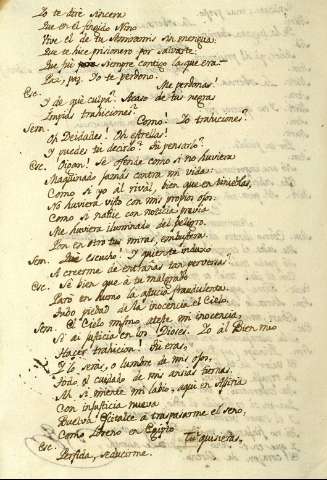 Yo te diré sincera
Que en el fingido Nino
Vive el de tu Semiramis su mengua:
Que te hice prisionero por salvarte
Que fui siempre contigo la que era
Que, paz. Yo te perdono.
Esc. Me perdonas!
Y de qué culpa? Acaso de tu negra
Impias trahiciones?
Sem. Como! Yo trahiciones?
Oh Deidades! Oh estrellas!
Y puedes tu decirlo? Tu pensarlo?
Esc. Oigan! Se ofende como si no huviera
Maquinado jamás contra mi vida:
Como si yo al rival, bien que en tinieblas,
No huviera visto con mis propios ojos:
Como si nadie con noticia previa
Me huviera iluminado del peligro.
Pon en otro tus miras, embustera.
Sem. Qué escucho! Y quien te induxo
A creerme de entrañas tan perversa?
Esc. Sé bien que a tu malgrado
Paró en humo la astucia fraudulenta.
Tubo piedad de la inocencia el Cielo.
Sem. El Cielo mismo ateste mi inocencia,
Si ai justicia en los Dioses. Yo al Bien mio
Hacer trahicion! Tu eras,
Y lo seras, o lumbre de mis ojos,
Todo el cuidado de mis ansias tiernas.
Ah si miente mi labio, aqui en Asiria
Con injusticia nueva
Buelva Scitalce a traspasarme el seno,
Como Idreno en Egipto
Esc. Tu quisieras,
Perfida, seducirme.